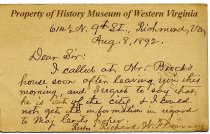 Property of History Museum of Western Virginia
614 1/2 N. 9th St., Richmond, Va.,
Aug. 8, 1892.
Dear Sir:
I called at Mr. Brock's
house soon after leaving you this
morning, and I regret to say that
he is out of the city, & I could
not get any information in regard
to
Richard